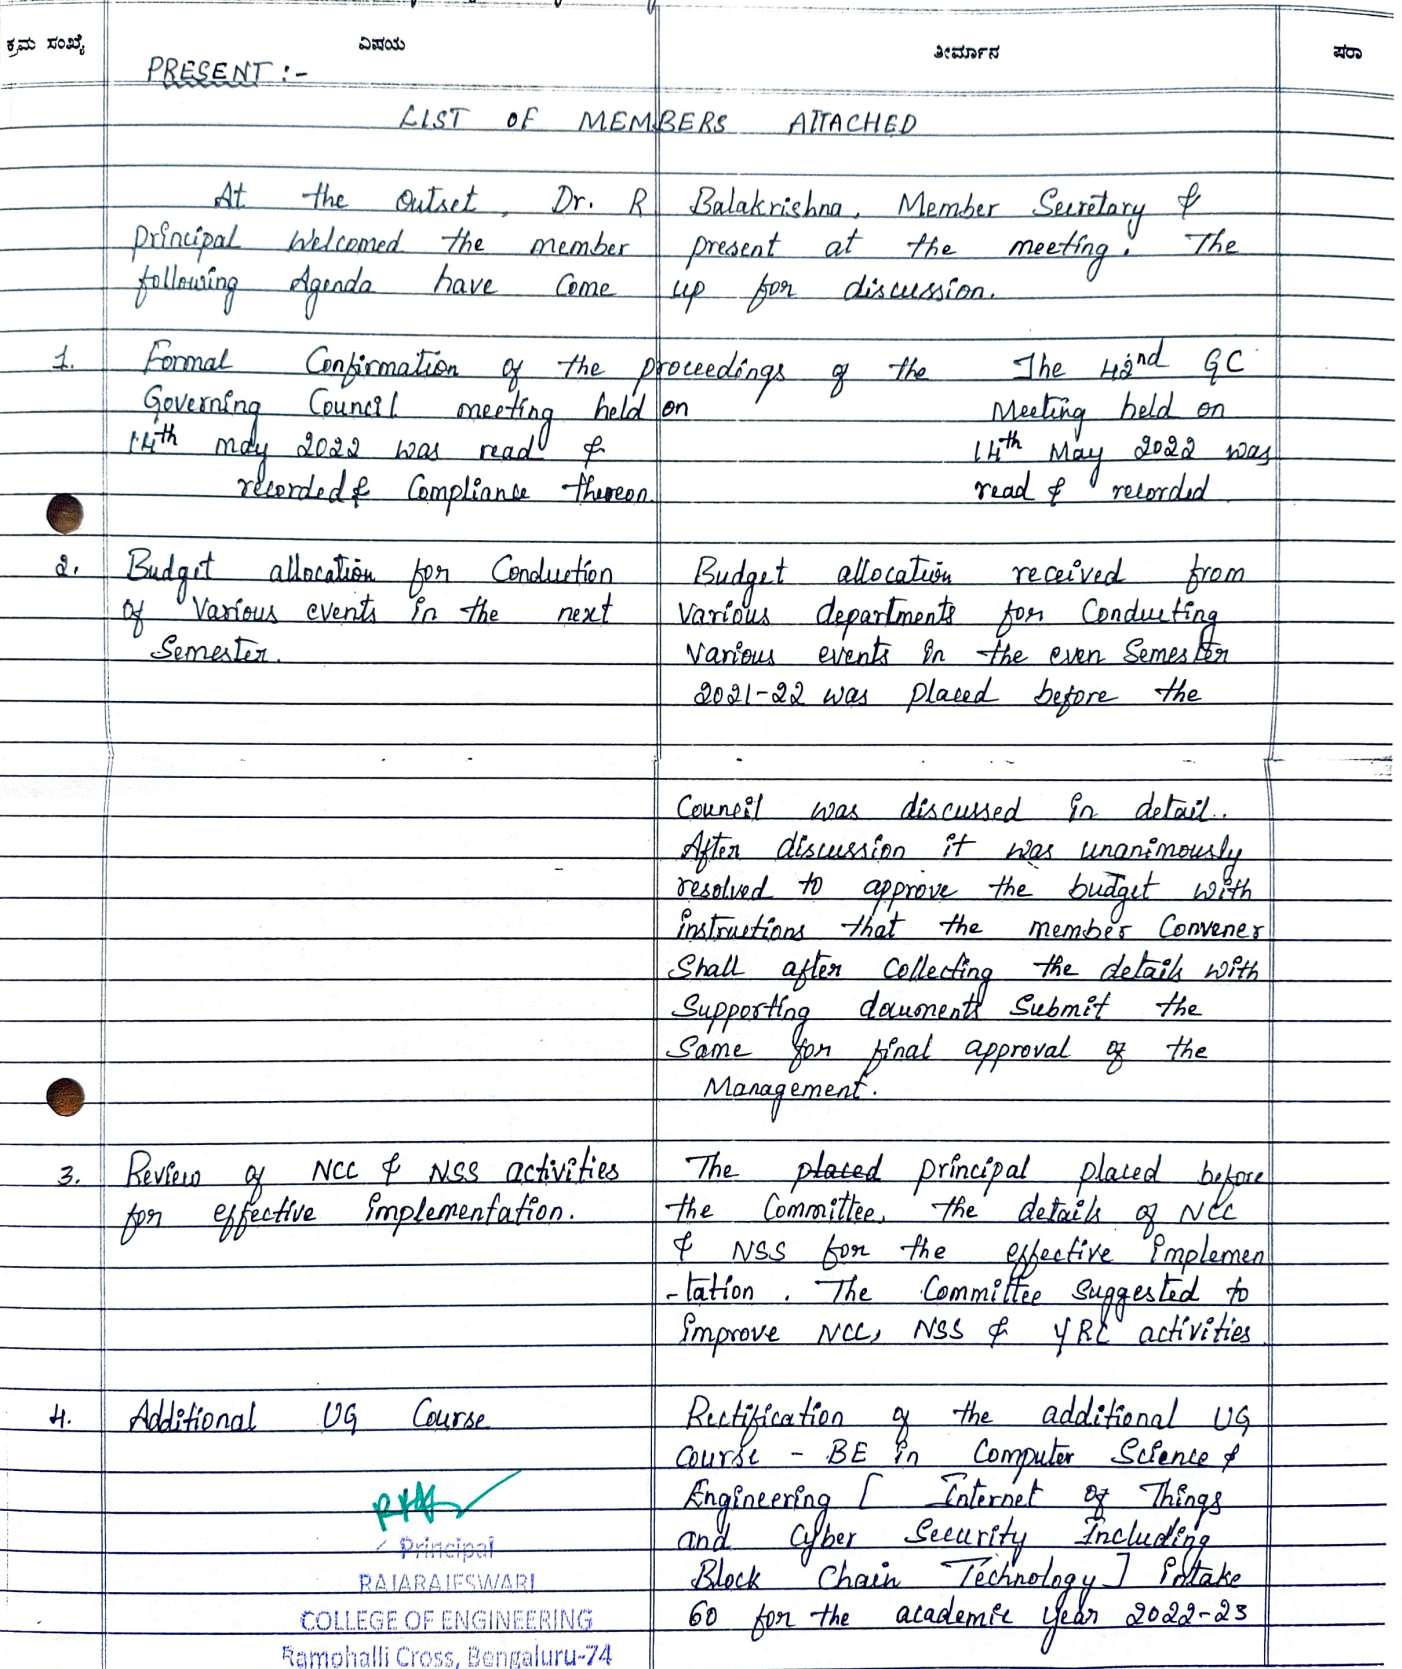 ಕ್ರಮ ಸಂಖ್ಯೆ ವಿಷಯ ತೀರ್ಮಾನ ಷರಾ
PRESENT :-
LIST OF MEMBERS ATTACHED
At the Outset, Dr. R Balakrishna, Member Secretary &
principal Welcomed the member present at the meeting. The
following Agenda have Come up for discussion.
1. Formal Confirmation of the proceedings of the
Governing Council meeting held on
14th may 2022 was read &
recorded & Compliance thereon.
The 42nd GC
Meeting held on
14th May 2022 was
read & recorded
2. Budget allocation for Conduction
of Various events in the next
Semester.
Budget allocation received from
Various departments for Conducting
Various events in the even Semester
2021-22 was placed before the
Council was discussed in detail.
After discussion it was unanimously
resolved to approve the budget with
instructions that the member Convener
Shall after Collecting the details with
Supporting documents Submit the
Same for final approval of the
Management.
3. Review of NCC & NSS activities
for effective implementation.
The placed principal placed before
the Committee, the details of NCC
& NSS for the effective implemen
-tation. The Committee Suggested to
improve NCC, NSS & YRC activities
4. Additional UG Course
Rectification of the additional UG
Course - BE in Computer Science &
Engineering [ Internet of Things
and Cyber Security Including
Block Chain Technology] intake
60 for the academic year 2022-23
Principal
RAJARAJESWARI
COLLEGE OF ENGINEERING
Ramohalli Cross, Bengaluru-74